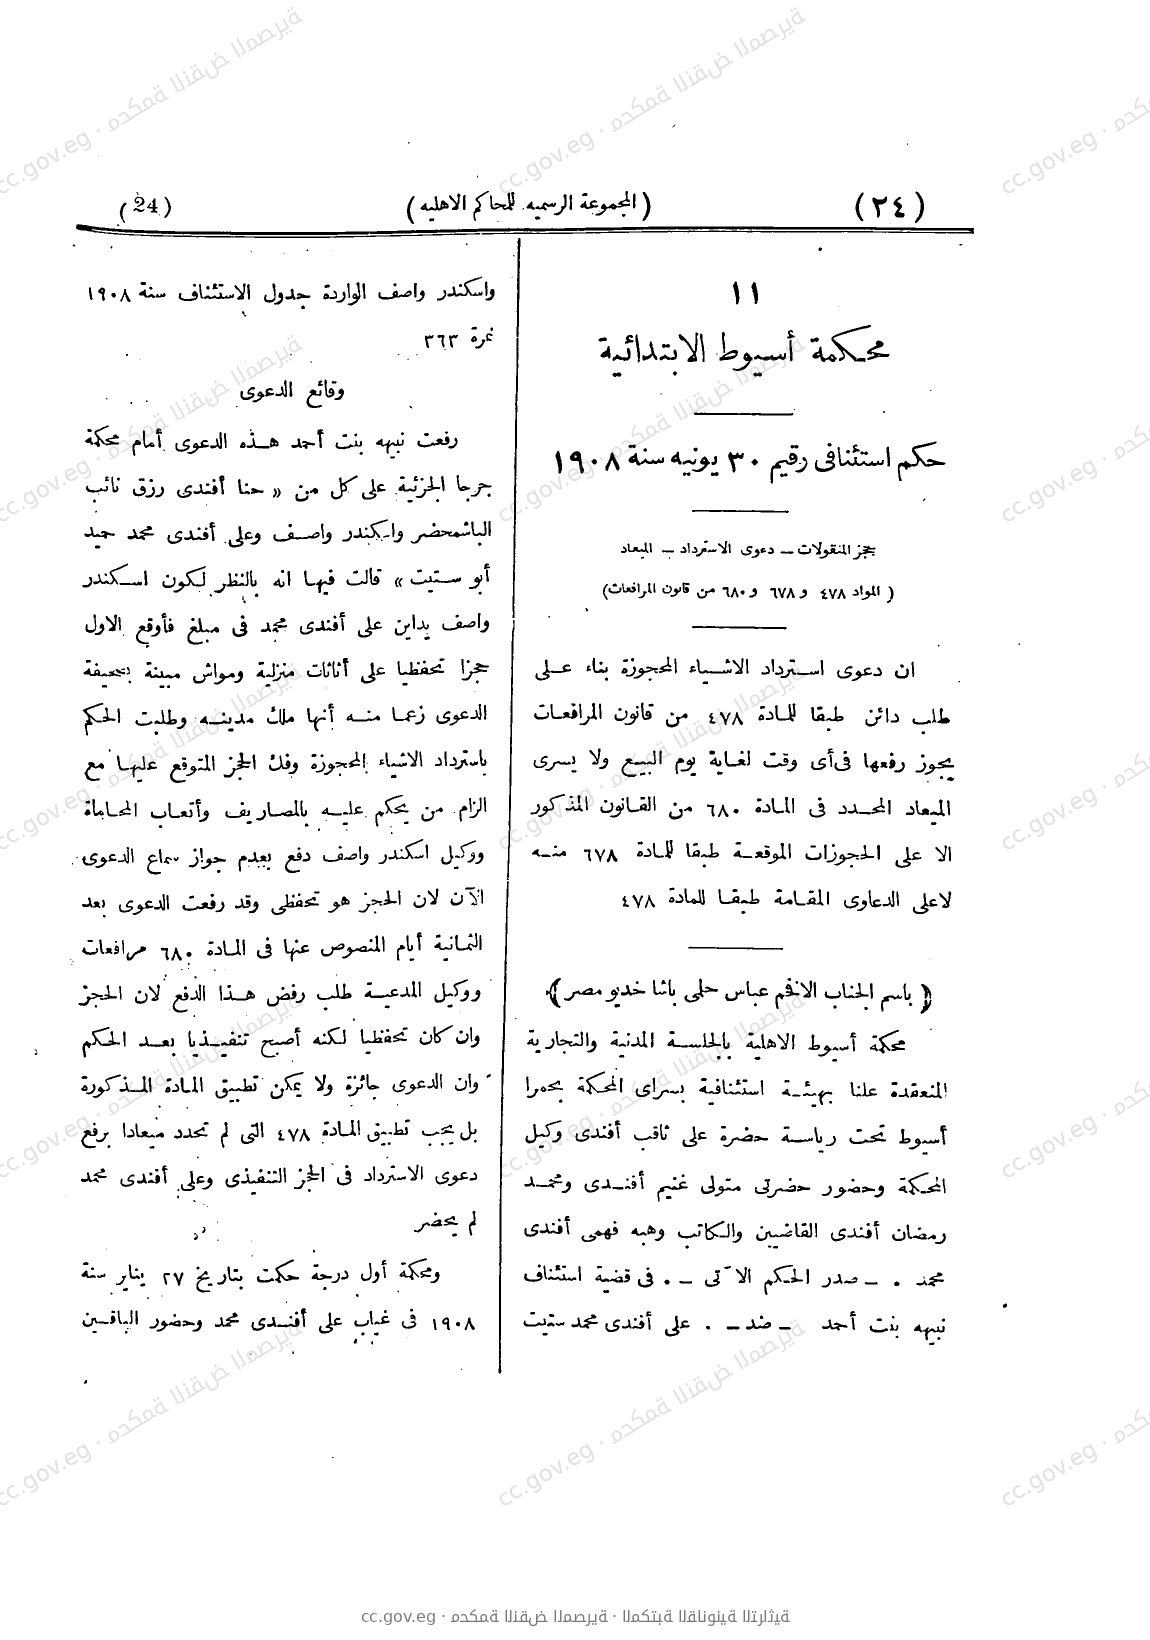 (٢٤)
(المجموعة الرسميه للمحاكم الاهليه)
(24)
١١
محكمة أسيوط الابتدائية
حكم استئنافى رقيم ٣٠ يونيه سنة ١٩٠٨
حجز المنقولات – دعوى الاسترداد – الميعاد
(المواد ٤٧٨ و ٦٧٨ و ٦٨٠ من قانون المرافعات)
ان دعوى استرداد الاشياء المحجوزة بناء على
طلب دائن طبقا للمادة ٤٧٨ من قانون المرافعات
يجوز رفعها فى أى وقت لغاية يوم البيع ولا يسرى
الميعاد المحدد فى المادة ٦٨٠ من القانون المذكور
الا على الحجوزات الموقعة طبقا للمادة ٦٧٨ منه
لا على الدعاوى المقامة طبقا للمادة ٤٧٨
(باسم الجناب الافخم عباس حلمى باشا خديو مصر)
محكمة أسيوط الاهلية بالجلسة المدنية والتجارية
المنعقدة علنا بهيئة استئنافية بسراى المحكمة بحمرا
أسيوط تحت رياسة حضرة على ثاقب أفندى وكيل
المحكمة وحضور حضرتى متولى غنيم أفندى ومحمد
رمضان أفندى القاضيين والكاتب وهبه فهمى أفندى
محمد . – صدر الحكم الآتى – . فى قضية استئناف
نبيهه بنت أحمد – ضد – . على أفندى محمد ستيت
واسكندر واصف الواردة جدول الاستئناف سنة ١٩٠٨
نمرة ٣٦٣
وقائع الدعوى
رفعت نبيهه بنت أحمد هذه الدعوى أمام محكمة
جرجا الجزئية على كل من « حنا أفندى رزق نائب
الباشمحضر واسكندر واصف وعلى أفندى محمد حميد
أبو ستيت » قالت فيها انه بالنظر لكون اسكندر
واصف يداين على أفندى محمد فى مبلغ فأوقع الاول
حجزا تحفظيا على أثاثات منزلية ومواش مبينة بصحيفة
الدعوى زعما منه أنها ملك مدينه وطلبت الحكم
باسترداد الاشياء المحجوزة وفك الحجز المتوقع عليها مع
الزام من يحكم عليه بالمصاريف وأتعاب المحاماة
ووكيل اسكندر واصف دفع بعدم جواز سماع الدعوى
الآن لان الحجز هو تحفظى وقد رفعت الدعوى بعد
الثمانية أيام المنصوص عنها فى المادة ٦٨٠ مرافعات
ووكيل المدعية طلب رفض هذا الدفع لان الحجز
وان كان تحفظيا لكنه أصبح تنفيذيا بعد الحكم
وان الدعوى جائزة ولا يمكن تطبيق المادة المذكورة
بل يجب تطبيق المادة ٤٧٨ التى لم تحدد ميعادا برفع
دعوى الاسترداد فى الحجز التنفيذى وعلى أفندى محمد
لم يحضر
ومحكمة أول درجة حكمت بتاريخ ٢٧ يناير سنة
١٩٠٨ فى غياب على أفندى محمد وحضور الباقين
cc.gov.eg · محكمة النقض المصرية · المكتبة القانونية التراثية